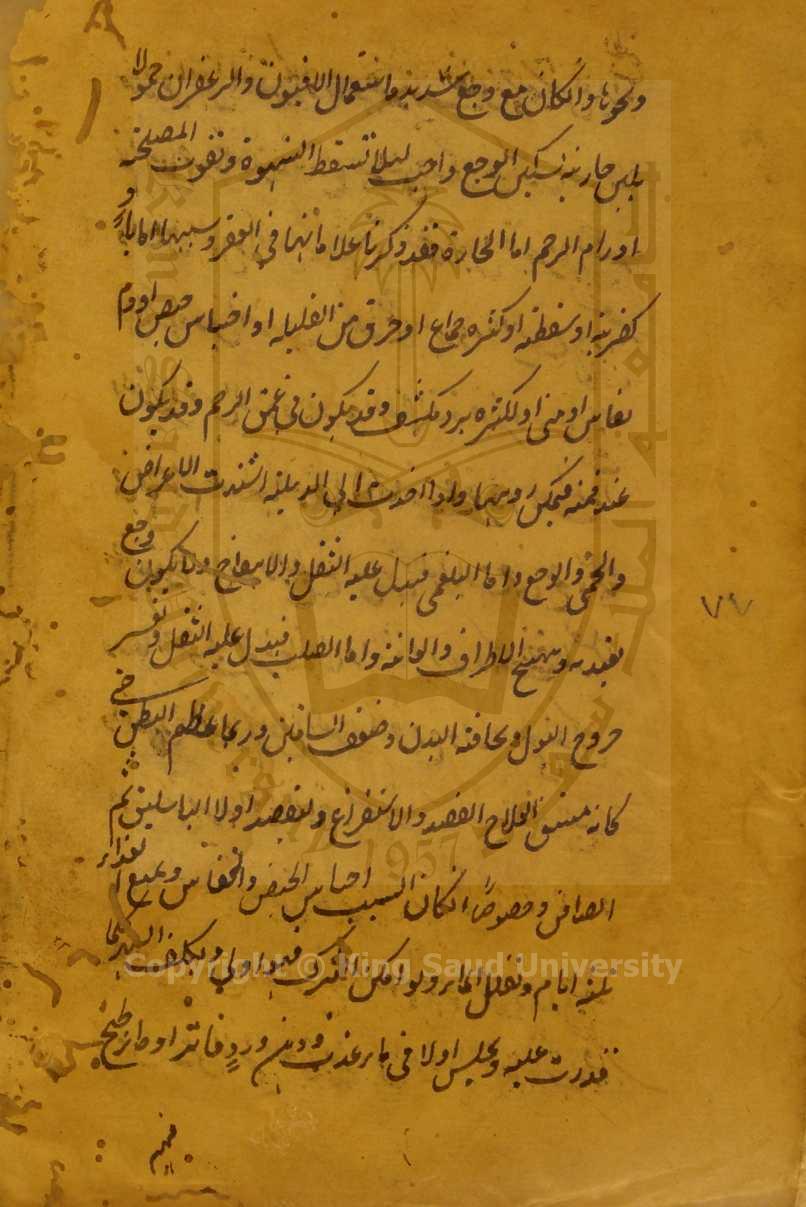 ونحوها وان كان مع وجع شديد فاستعمال الافيون والزعفران حمولا
بلبن جارية لتسكين الوجع واجب ليلا تسقط الشهوة وتفوت المصلحة
اورام الرحم اما الحارة فقد ذكرنا علاماتها في العقر وسببها اما باد
كضربة او سقطة او كثرة جماع او خرق من القابله او احتباس حيض او دم
نفاس او منى او لكثرة برد مكثف وقد يكون في عنق الرحم وقد يكون
عند فمه واذا اخذت الى الدبيلة اشتدت الاعراض
والحمى والوجع واما البلغمى فيدل عليه الثقل والانتفاخ ولا يكون وجع
يعتد به وتهيج الاطراف والعانة واما الصلب فيدل عليه الثقل وتعسر
خروج البول ونحافة البدن وضعف الساقين وربما عظم البطن حتى
كانه مستسق العلاج الفصد والاستفراغ وليفصد اولا الباسليق ثم
الصافن وخصوصا ان كان السبب احتباس الحيض والنفاس ويمنع الغذاء
ثلثة ايام وتقلل الماء ولو امكن الترك فهو اولى وليكلف السهر كما
قدرت عليه ويجلس اولا في ماء عذب ودهن ورد فاتر او ماء طبخ
فيه
٧٧
Copyright © King Saud University
1957